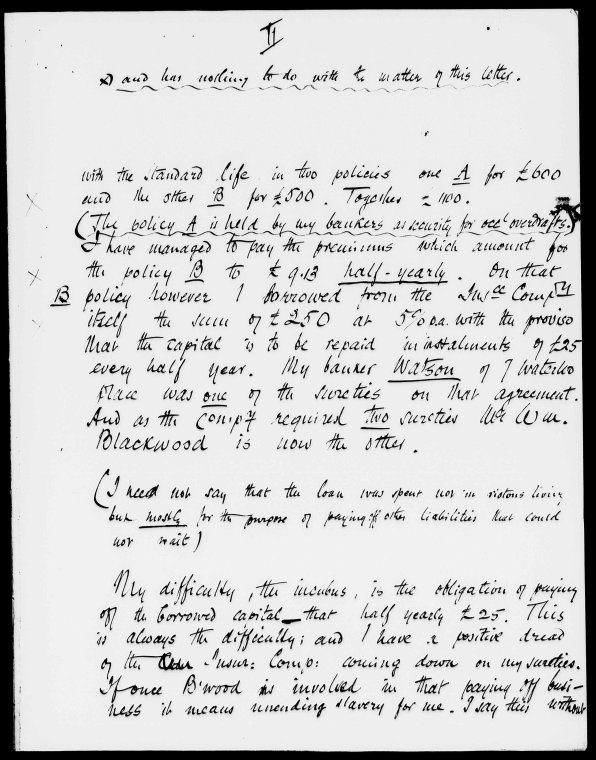 II
x) and has nothing to do with the matter of this letter.
with the Standard life in two policies one A for £600
and the other B for £500. Together £ 1100.
(The policy A is held by my bankers as security for occl overdrafts.)
I have managed to pay the premiums which amount for
the policy B to £ 9.13 half-yearly. On that
B policy however I borrowed from the Insce Compy
itself the sum of £250 at 5% p.a. with the proviso
that the capital is to be repaid in instalments of £25
every half year. My banker Watson of 7 Waterloo
place was one of the sureties on that agreement.
And as the Compy required two sureties Mr Wm.
Blackwood is now the other.
(I need not say that the loan was spent not in riotous living
but mostly for the purpose of paying off other liabilities that could
not wait)
My difficulty, the incubus, is the obligation of paying
off the borrowed capital—that half yearly £25. This
is always the difficulty; and I have a positive dread
of the Insur: Comp: coming down on my sureties.
If once B'wood is involved in that paying off busi-
ness it means unending slavery for me. I say this without